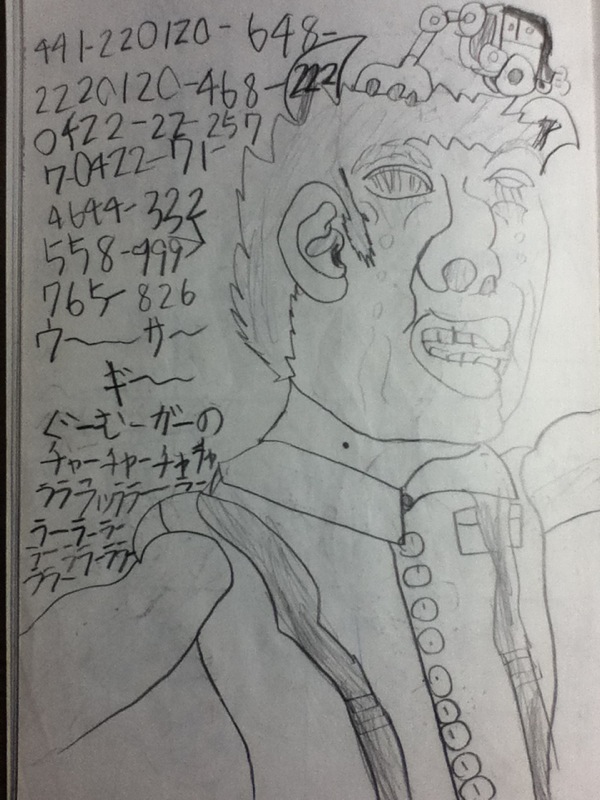 441-220120-648-
2220120-468-222
0422-22-257
7-0422-71-
4644-332
558-999
765-826
ウーーサー
ギー
ぐーむーガーの
チャーチャーチャチャ
ララフッララーラー
ラーラーラー
ラーラーララー
ララー